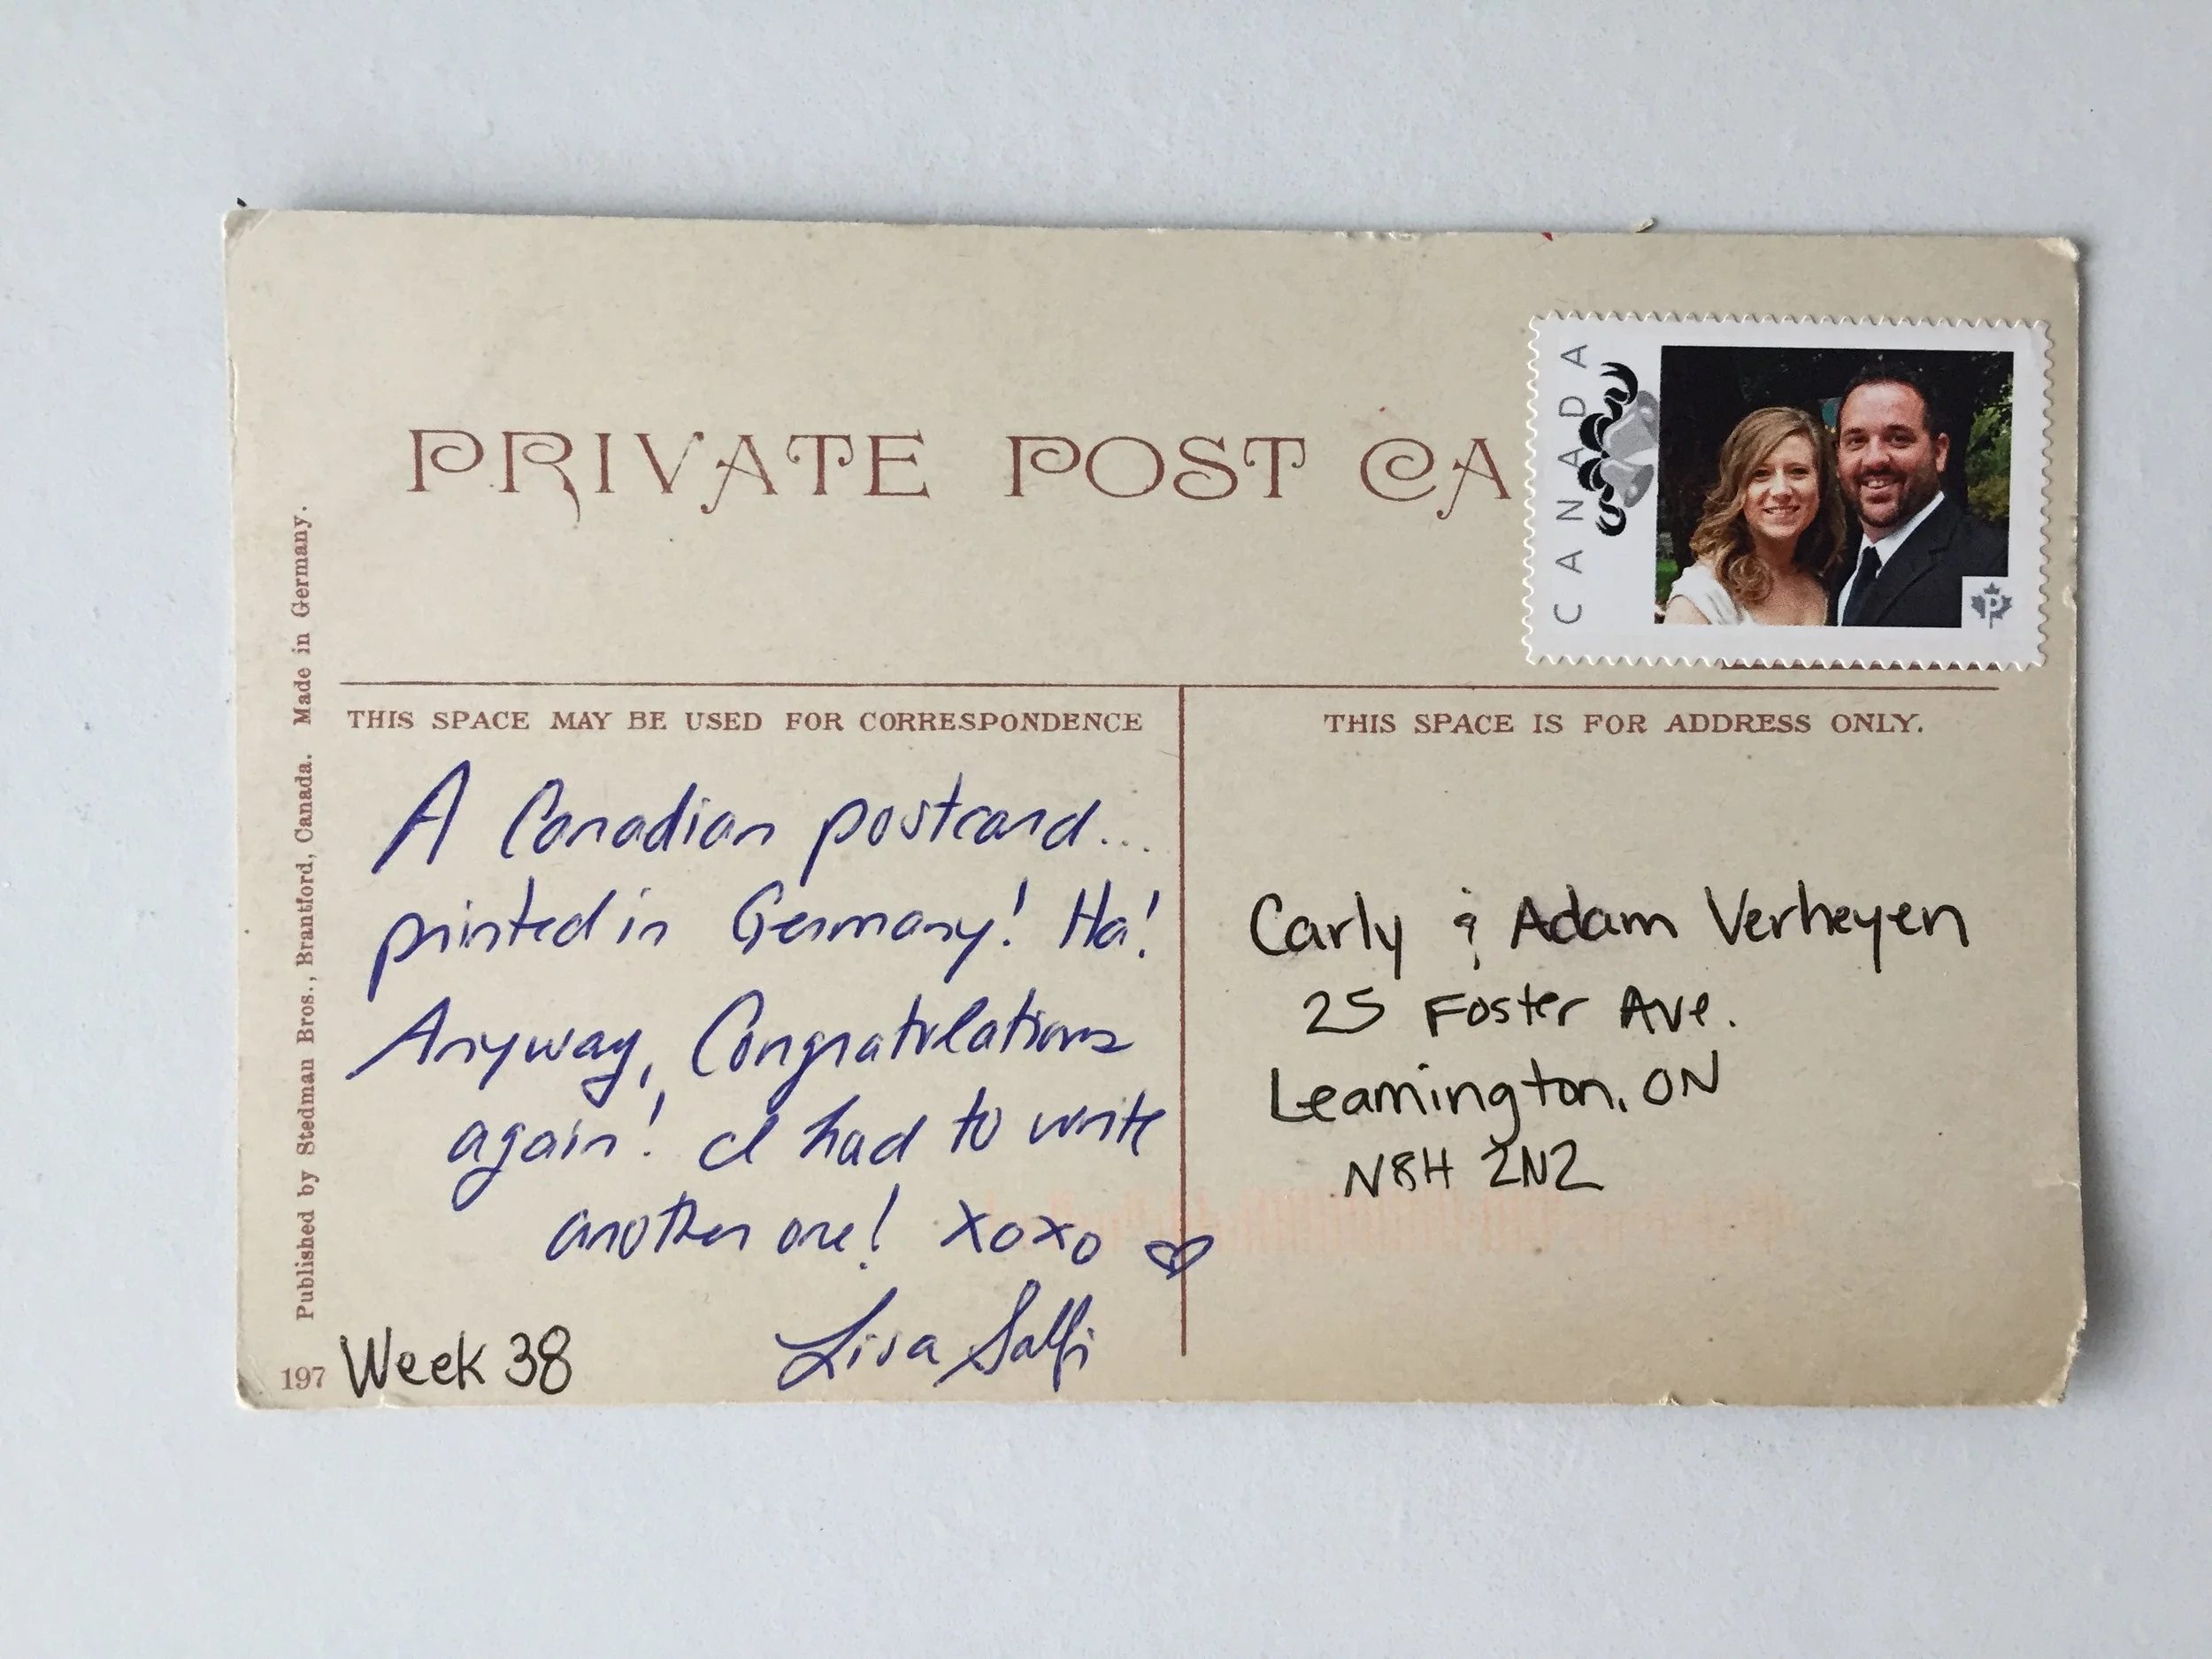 PRIVATE POST CA
CANADA
P
Published by Stedman Bros., Brantford, Canada. Made in Germany.
THIS SPACE MAY BE USED FOR CORRESPONDENCE
A Canadian postcard...
printed in Germany! Ha!
Anyway, Congratulations
again! I had to write
another one! xoxo ♡
Lisa Salfi
197
Week 38
THIS SPACE IS FOR ADDRESS ONLY.
Carly & Adam Verheyen
25 Foster Ave.
Leamington, ON
N8H 2N2